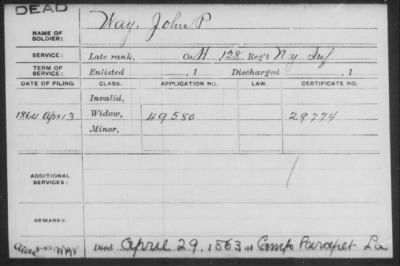 DEAD
NAME OF SOLDIER: Way, John P
SERVICE: Late rank, Co. H 128 Reg't N.Y. Inf
TERM OF SERVICE: Enlisted , 1 Discharged , 1
DATE OF FILING. CLASS. APPLICATION NO. LAW. CERTIFICATE NO.
Invalid,
1864 Apr 3 Widow, 49580 29774
Minor,
ADDITIONAL SERVICES:
REMARKS:
Died April 29, 1863 at Camp Parapet La